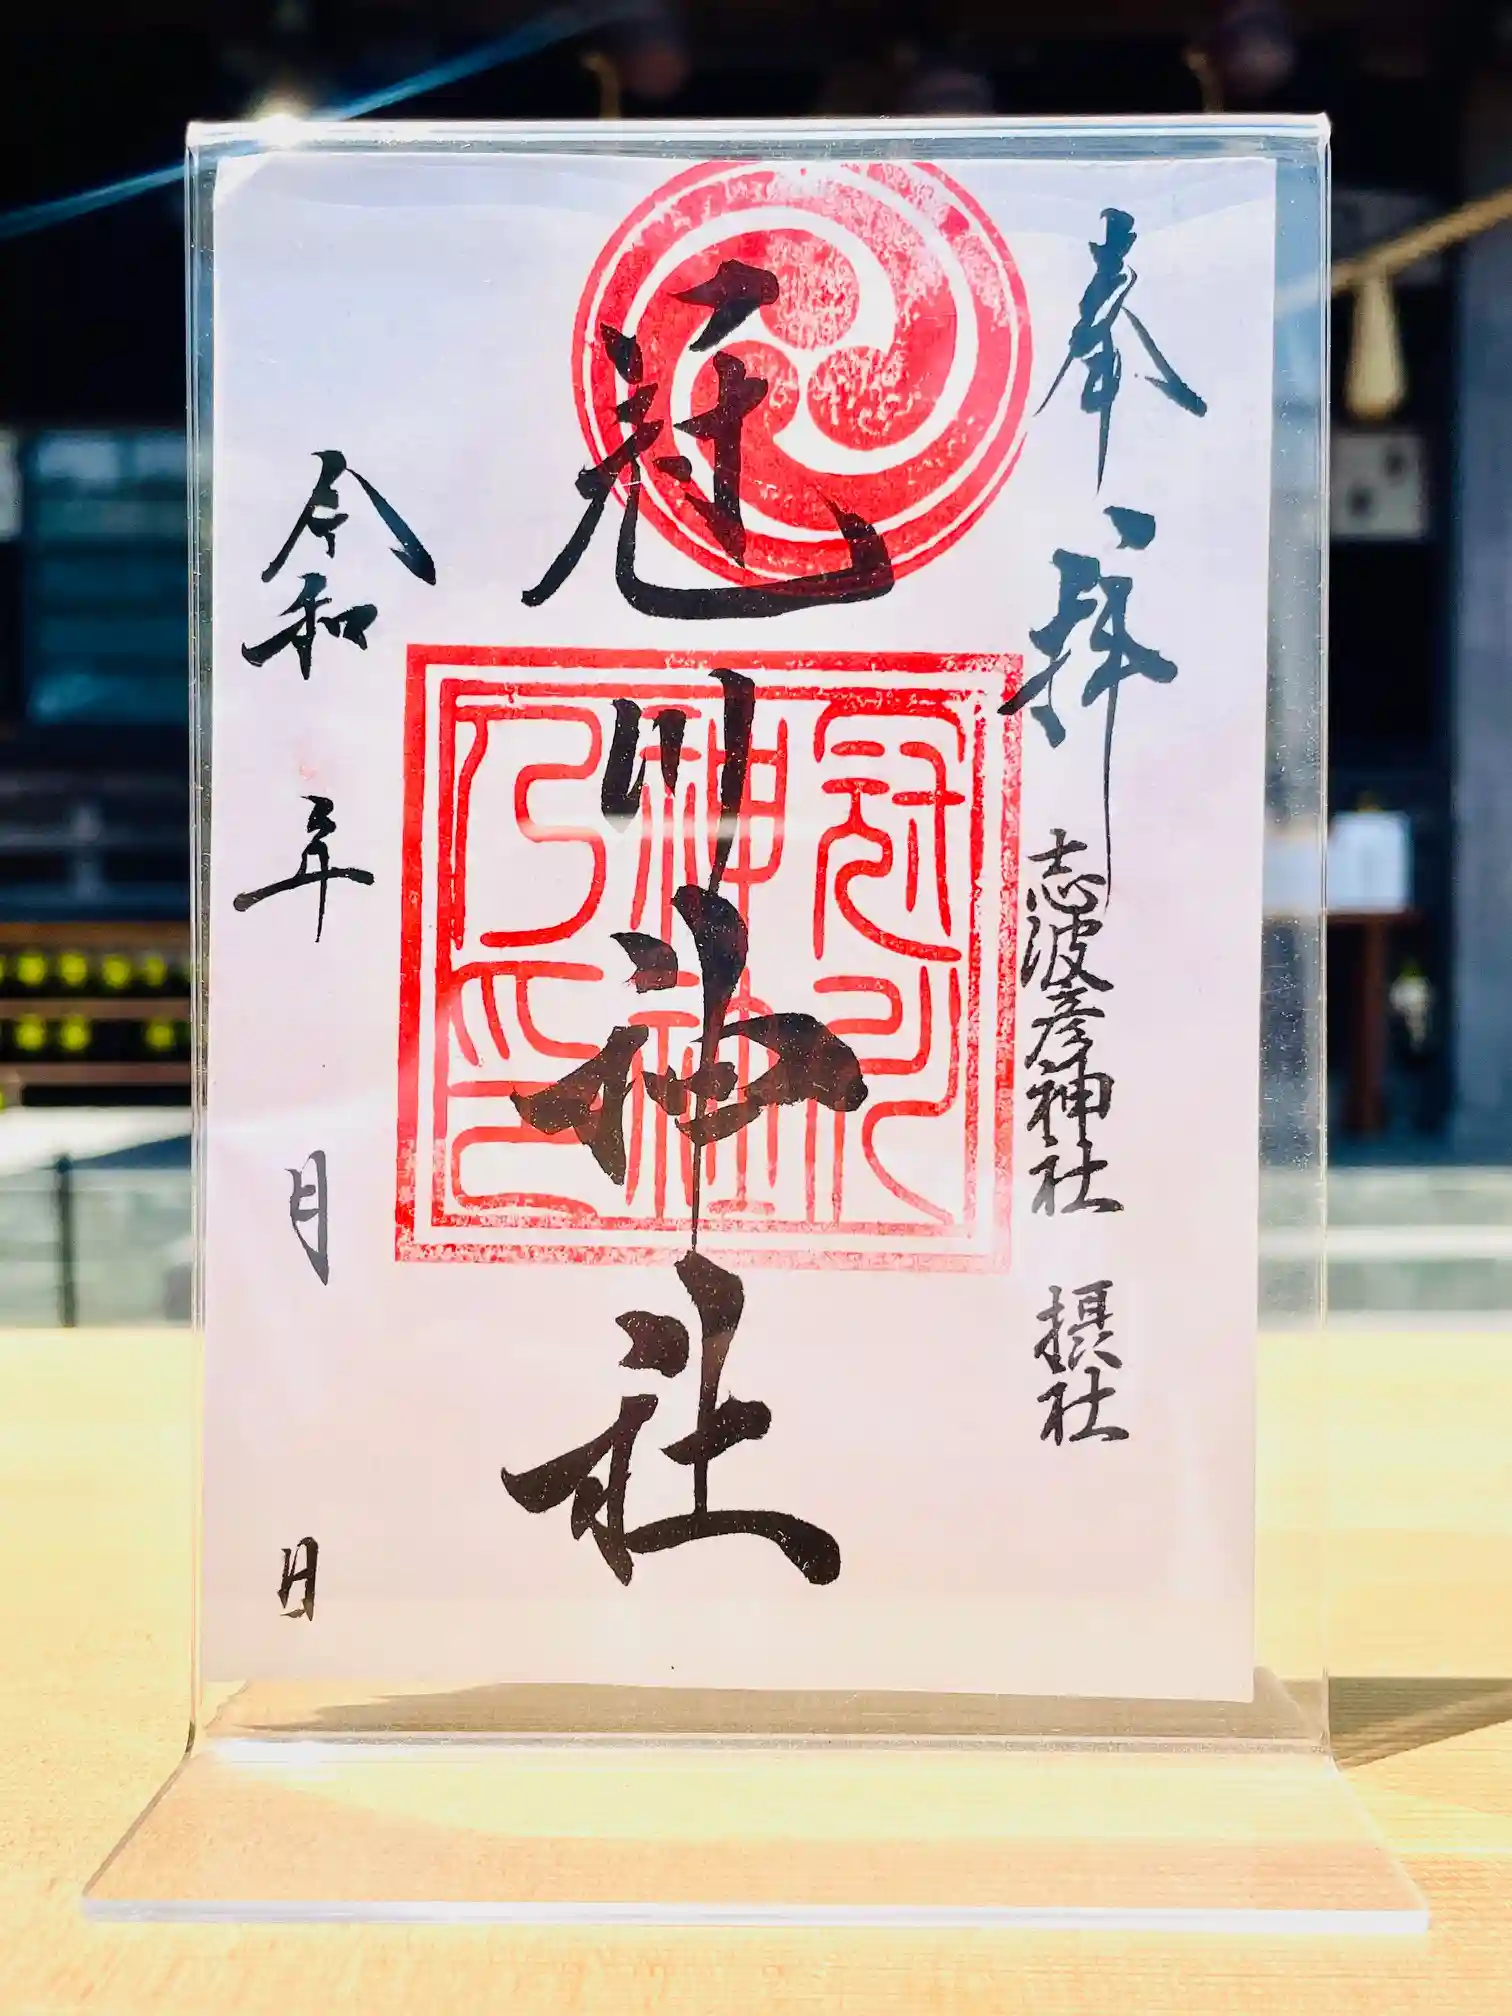 奉拝
志波彦神社 摂社
冠川神社
冠川
神社
乃印
令和 年 月 日